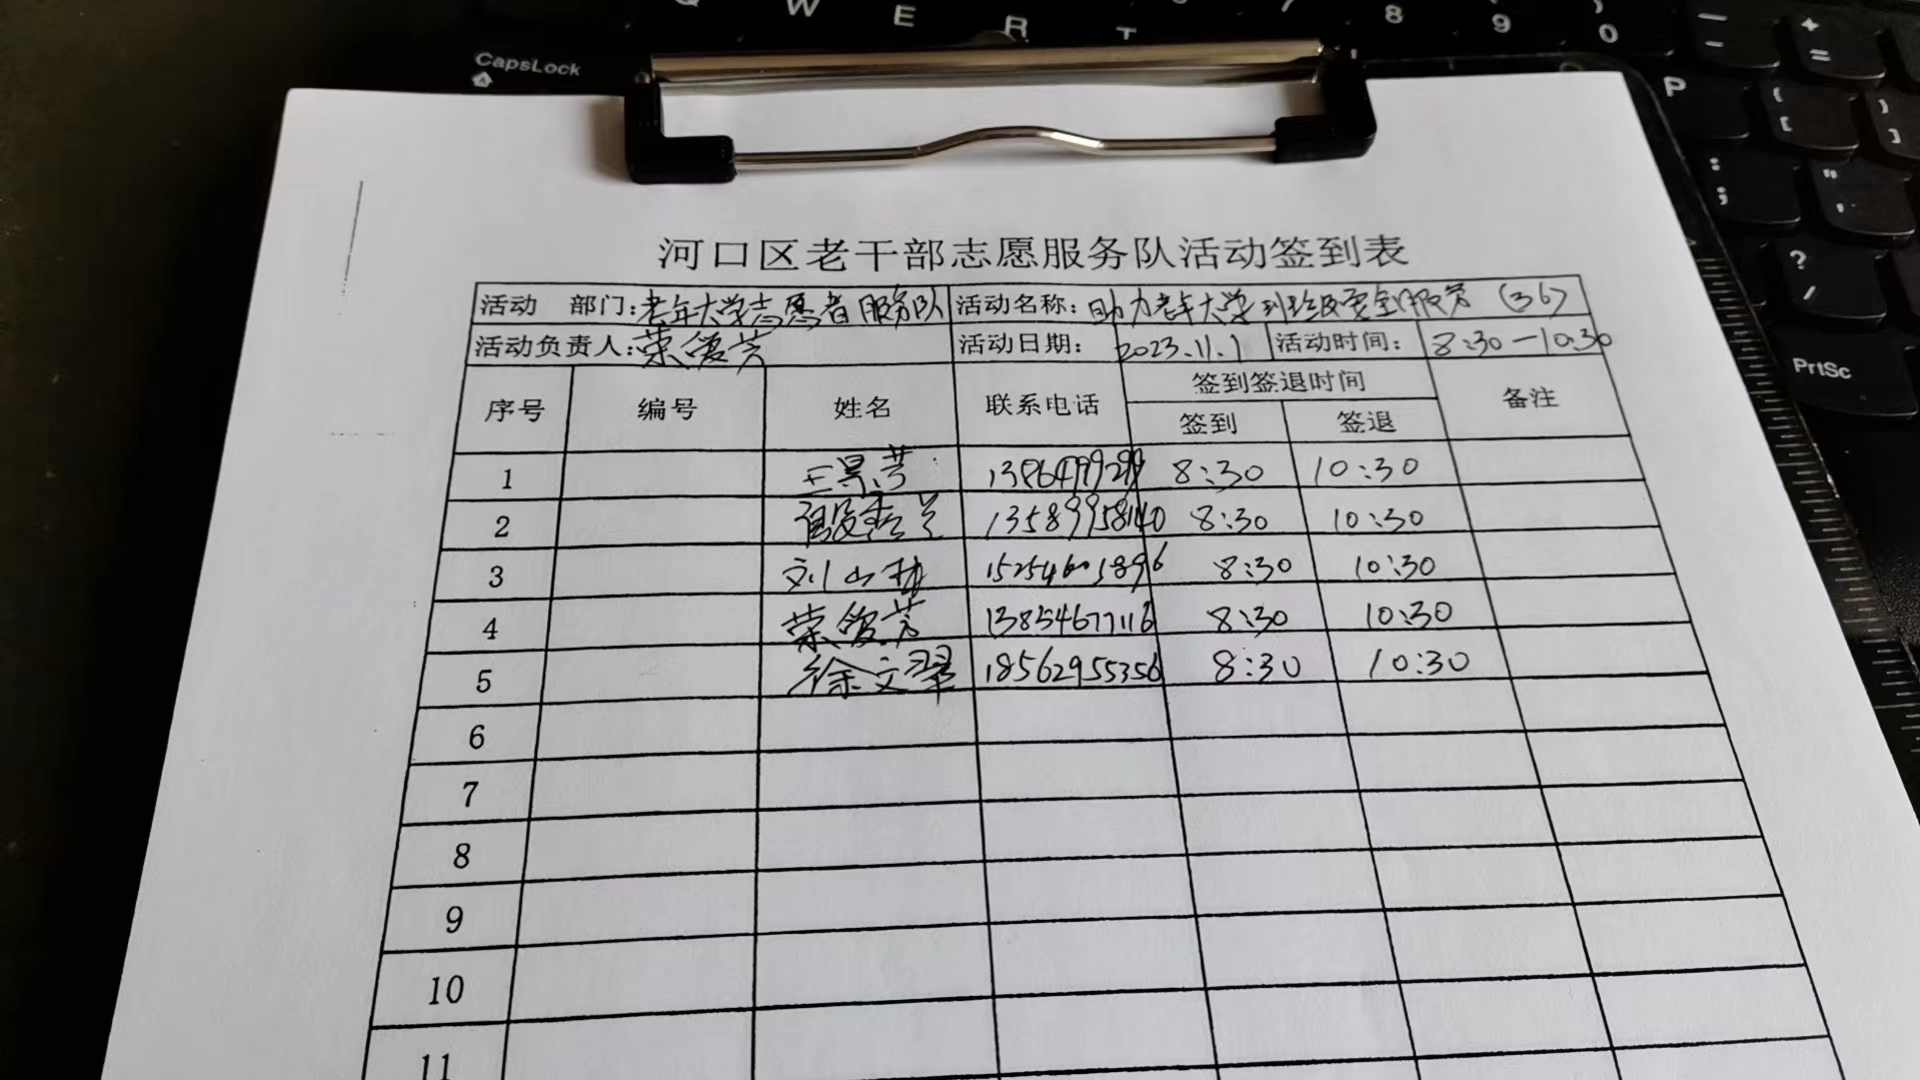 Q W E R T 7 8 9 0 — - + =
CapsLock
P { [ } ]
: ; " '
? /
PrtSc
河口区老干部志愿服务队活动签到表
活动 部门: 老年大学志愿者服务队 活动名称: 助力老年大学班级安全服务 (36)
活动负责人: 荣俊芳 活动日期: 2023.11.1 活动时间: 8:30-10:30
序号 编号 姓名 联系电话 签到签退时间 备注
签到 签退
1 王景芳 8:30 10:30
2 殷秀兰 13589958140 8:30 10:30
3 刘山林 15254601896 8:30 10:30
4 荣俊芳 13854677116 8:30 10:30
5 徐文翠 18562955356 8:30 10:30
6
7
8
9
10
11